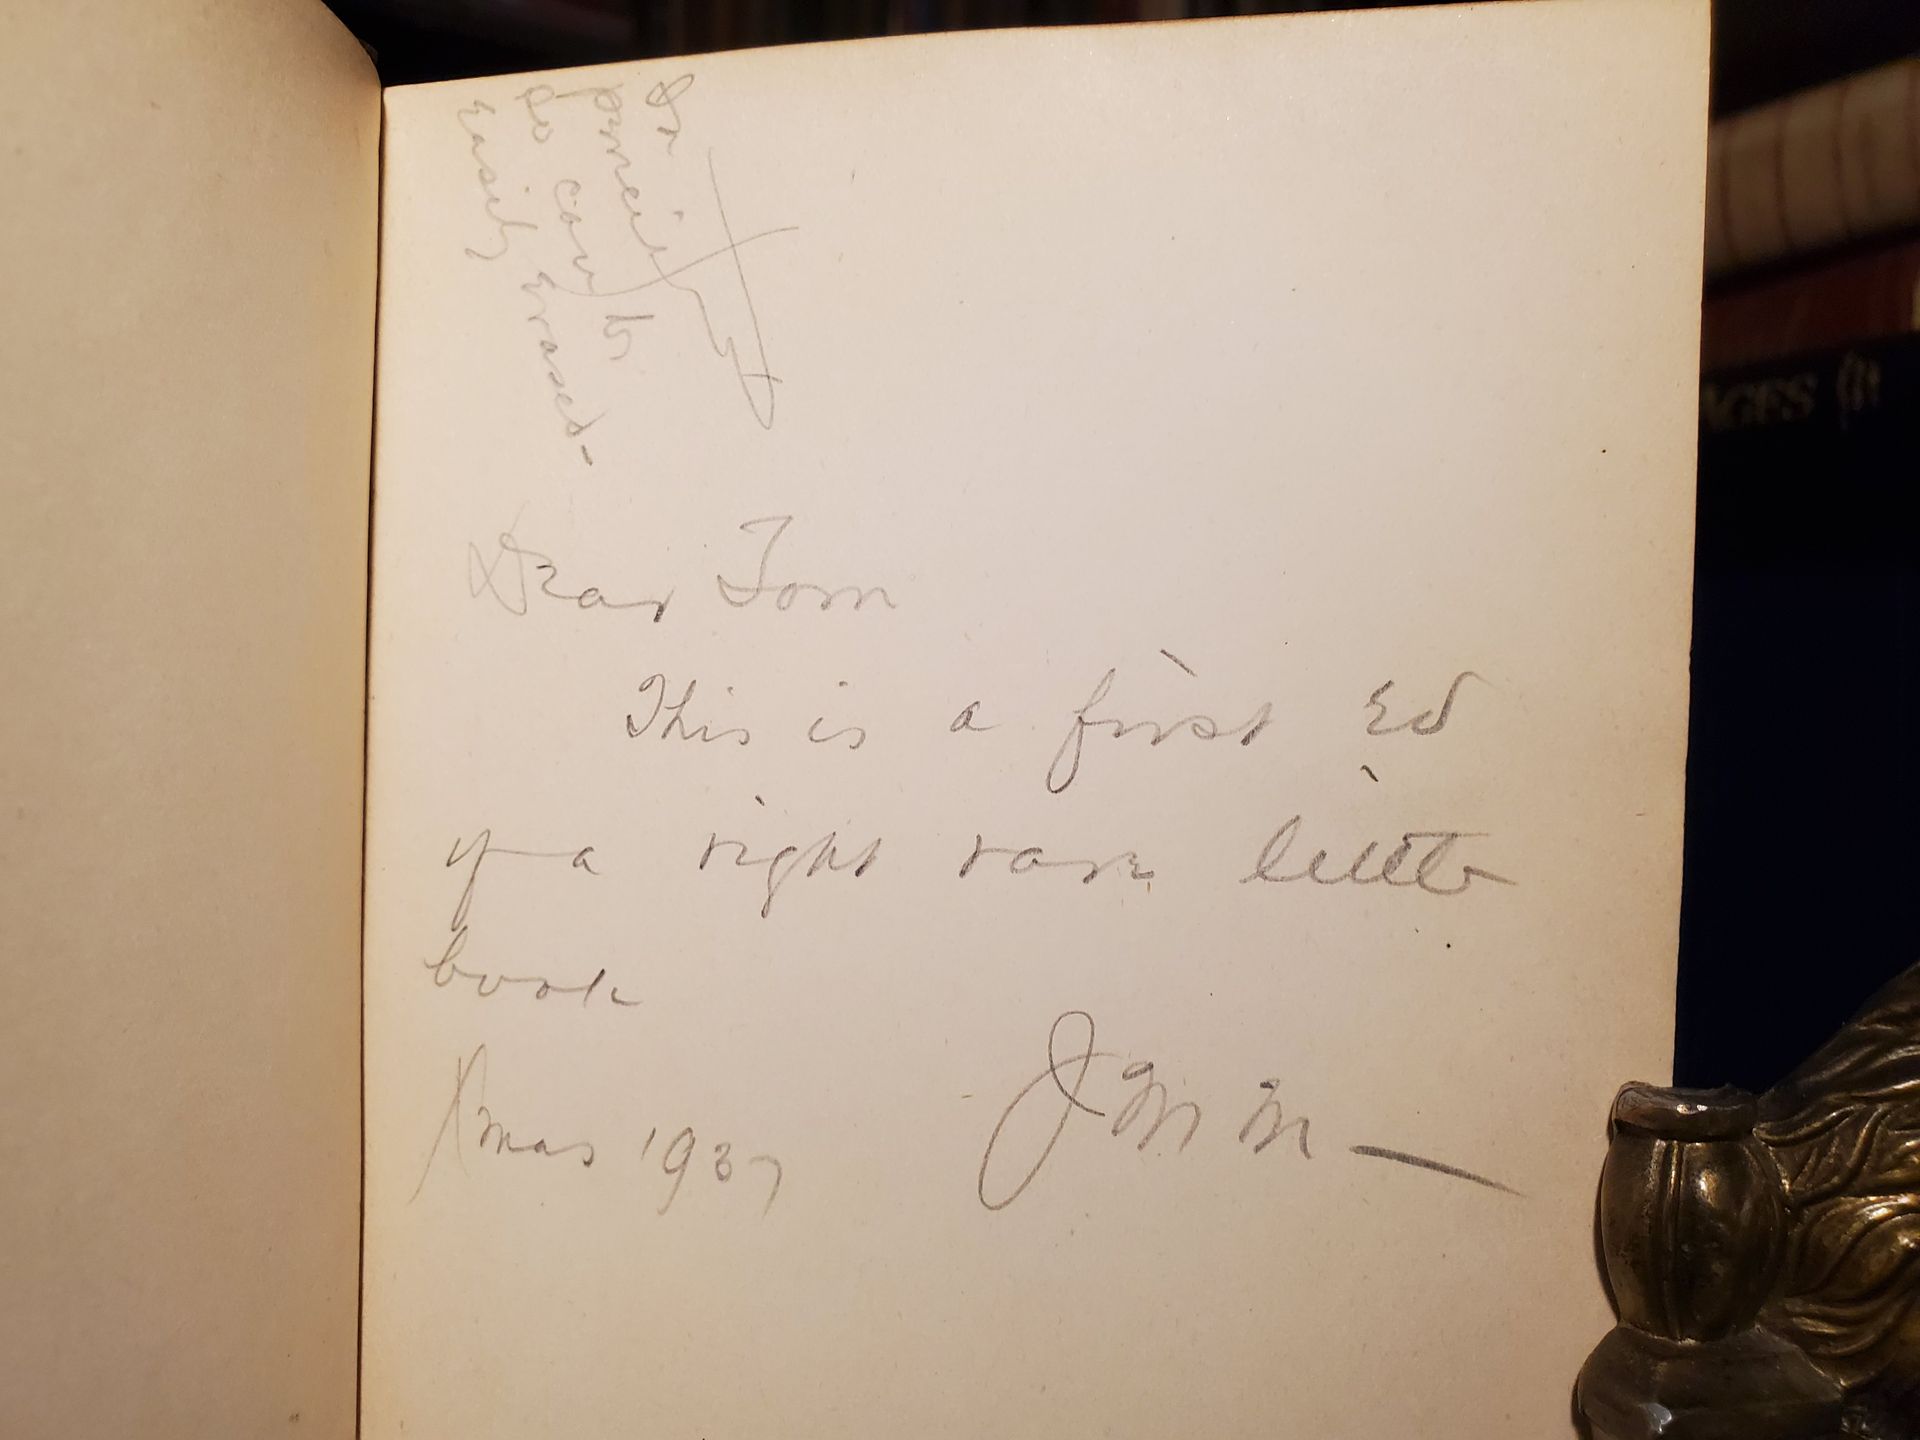 In
pencil
so can be
easily erased-
Dear Tom
This is a first Ed
of a right rare little
book
Xmas 1937
AGES